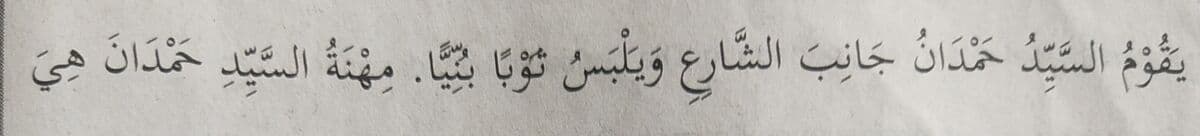 يَقُوْمُ السَّيِّدُ حَمْدَانُ جَانِبَ الشَّارِعِ وَيَلْبَسُ ثَوْبًا بُنِّيًّا. مِهْنَةُ السَّيِّدِ حَمْدَانَ هِيَ